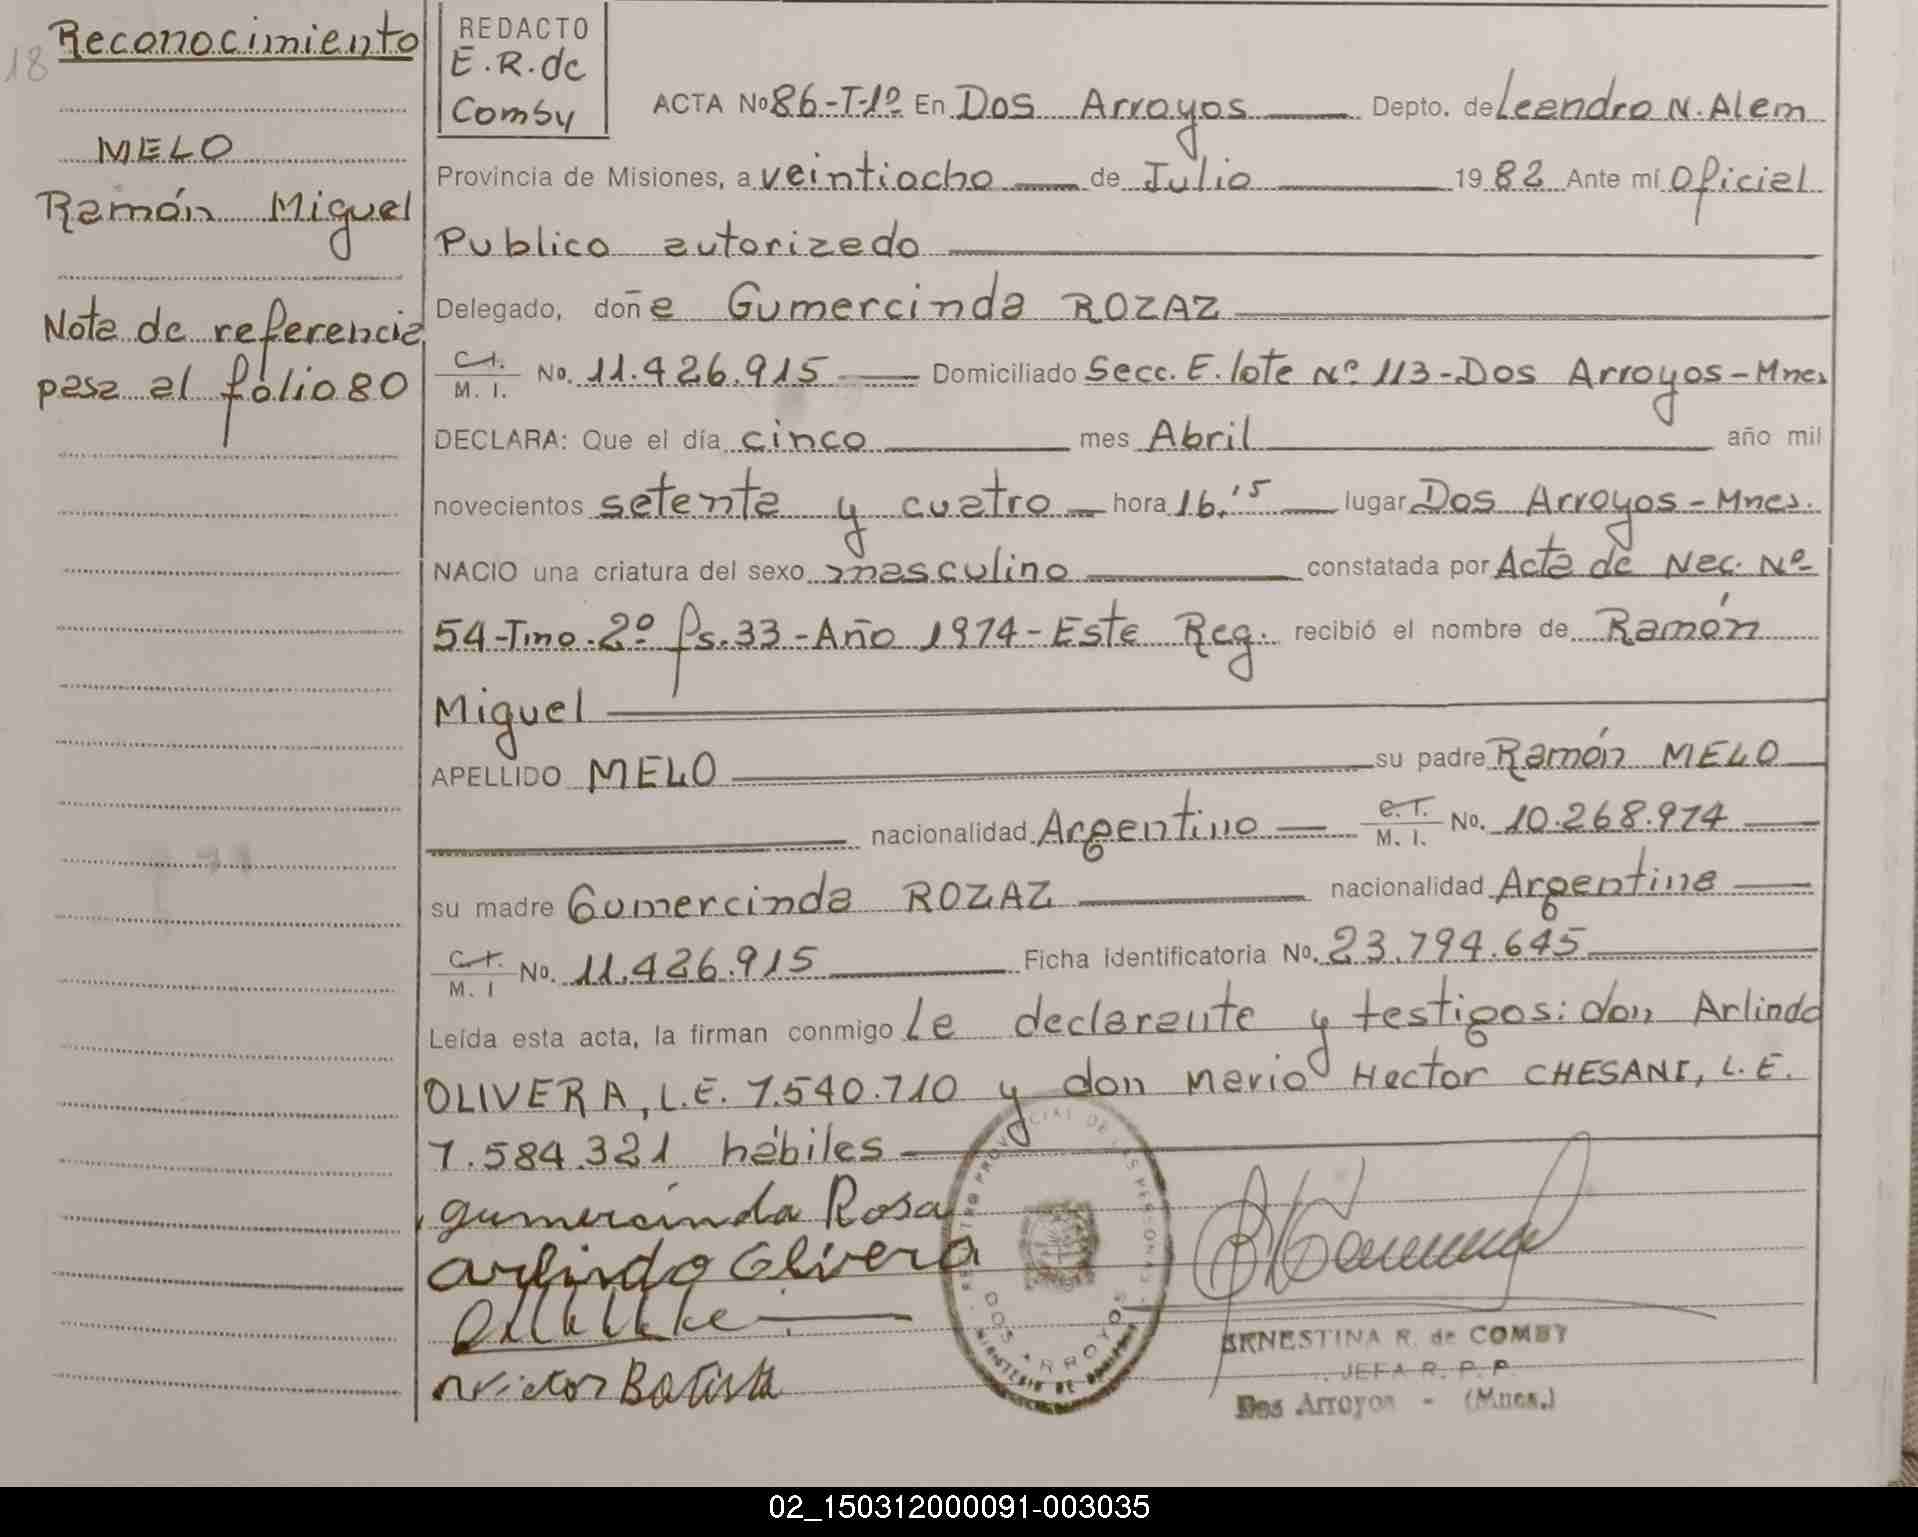 18
Reconocimiento
MELO
Ramón Miguel
Nota de referencia
pasa al folio 80
REDACTO
E.R.de
Comby
ACTA No 86-T-1º En Dos Arroyos Depto. de Leandro N. Alem
Provincia de Misiones, a veintiocho de Julio 1982 Ante mí Oficial
Publico autorizado
Delegado, doña Gumercinda ROZAZ
C.I. M. I. No. 11.426.915 Domiciliado Secc. E. lote Nº 113-Dos Arroyos-Mnes
DECLARA: Que el día cinco mes Abril año mil
novecientos setenta y cuatro hora 16,15 lugar Dos Arroyos-Mnes.
NACIO una criatura del sexo masculino constatada por Acta de Nac. Nº
54-Tmo.2º fs.33-Año 1974-Este Reg. recibió el nombre de Ramón
Miguel
APELLIDO MELO su padre Ramón MELO
nacionalidad Argentino C.I. M. I. No. 10.268.974
su madre Gumercinda ROZAZ nacionalidad Argentina
C.I. M. I No. 11.426.915 Ficha identificatoria No. 23.794.645
Leída esta acta, la firman conmigo la declarante y testigos: don Arlindo
OLIVERA, L.E. 7.540.710 y don Mario Hector CHESANI, L.E.
7.584.321 hábiles
gumercinda Rosa
Arlindo Olivera
Victor Batista
DOS ARROYOS
ERNESTINA R. de COMBY
JEFA R. P. P.
Dos Arroyos - (Mnes.)
02_150312000091-003035